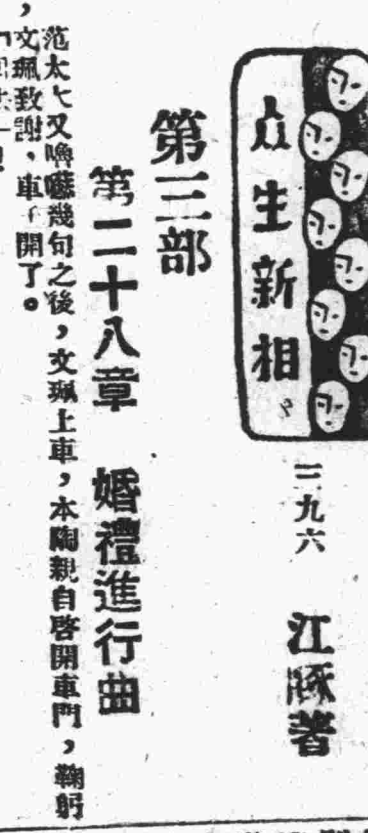 众生新相
三九六
江豚著
第三部
第二十八章 婚禮進行曲
范太太又嚕囌幾句之後，文珮上車，本陶親自啓開車門，鞠躬
，文珮致謝，車子開了。